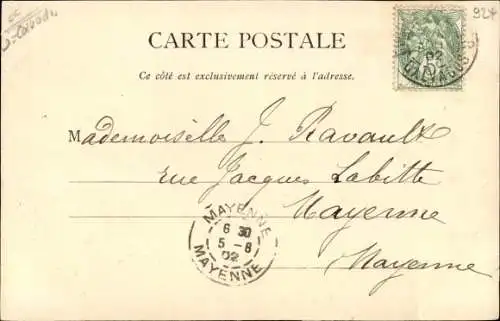 924
CARTE POSTALE
Ce côté est exclusivement réservé à l'adresse.
Mademoiselle J. Ravault
rue Jacques Labitte
Mayenne
Mayenne
MAYENNE
6 30
5 - 8
02
MAYENNE